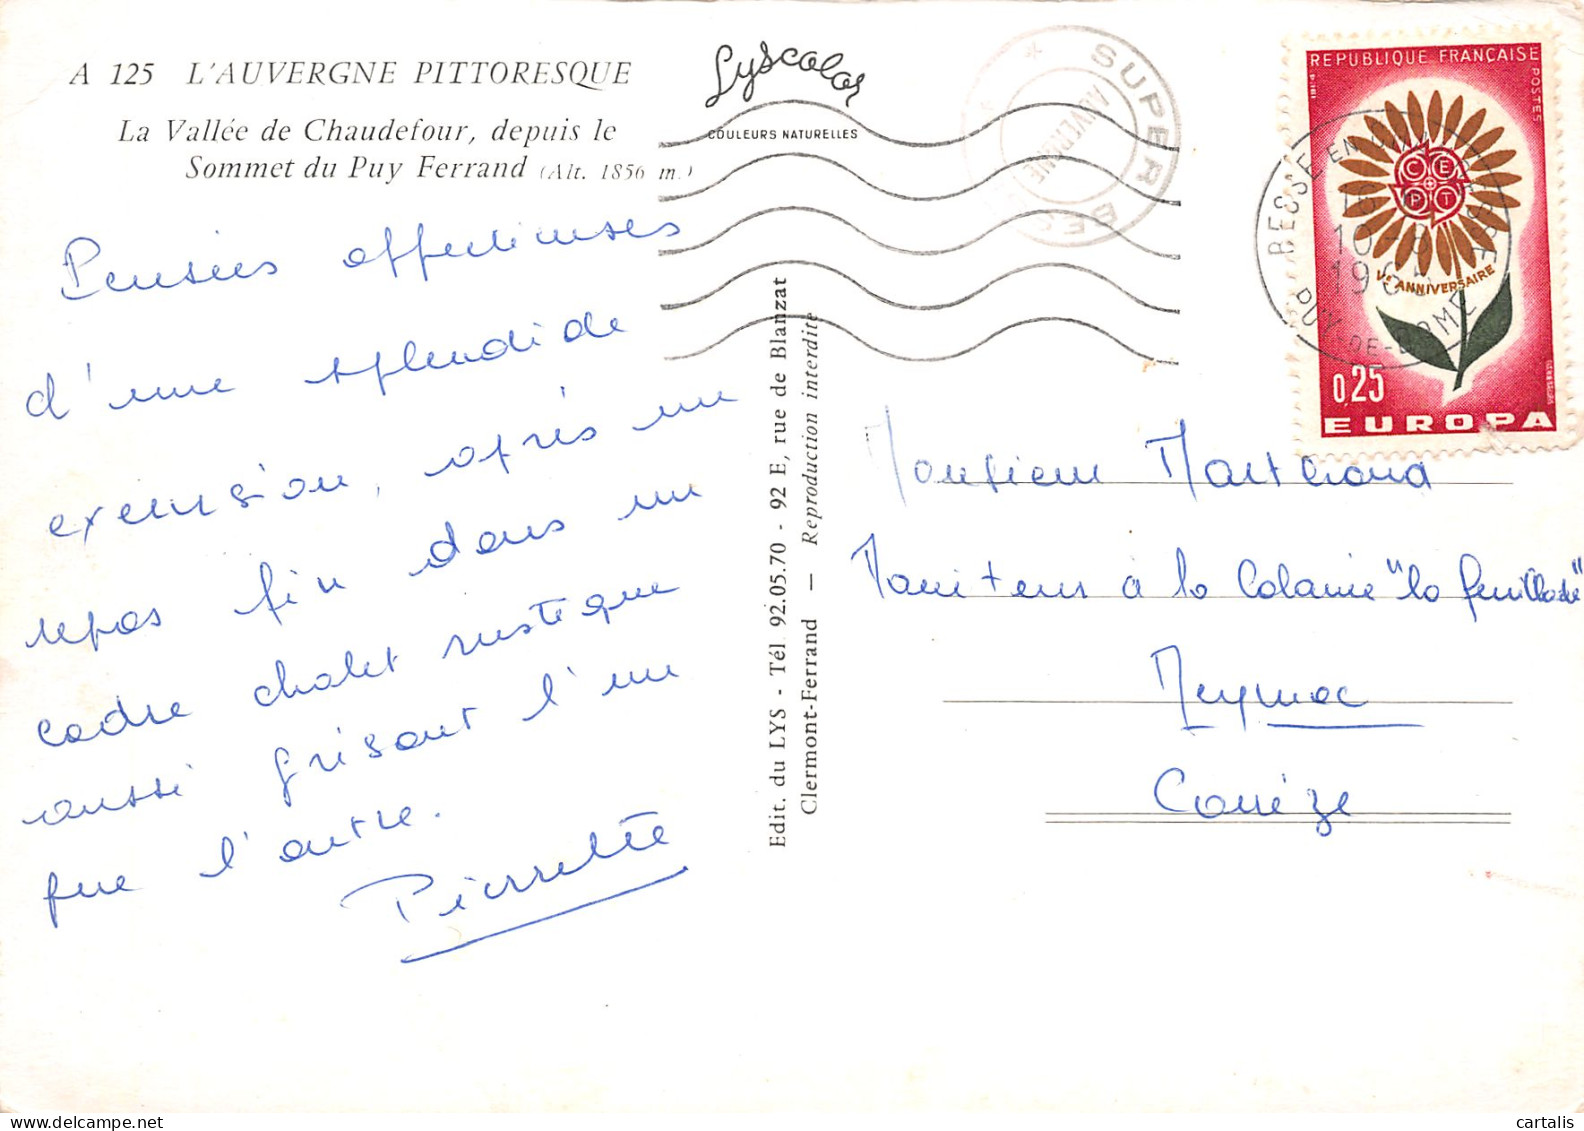 A 125 L'AUVERGNE PITTORESQUE
La Vallée de Chaudefour, depuis le
Sommet du Puy Ferrand (Alt. 1856 m.)
Lyscolor
COULEURS NATURELLES
SUPER BES
AUVERGNE
REPUBLIQUE FRANÇAISE
POSTES
1964
C E P T
Ve ANNIVERSAIRE
0,25
EUROPA
BESSE EN
PUY-DE-DOME
10-9
1965
Pensées affectueuses
d'une splendide
excursion, après un
repas fin dans un
cadre chalet rustique
aussi grisant l'un
que l'autre.
Pierrette
Edit. du LYS - Tél. 92.05.70 - 92 E, rue de Blanzat
Clermont-Ferrand — Reproduction interdite
Monsieur Marchand
Moniteur à la Colonie "la feuillade"
Meymac
Corrèze
cartalis